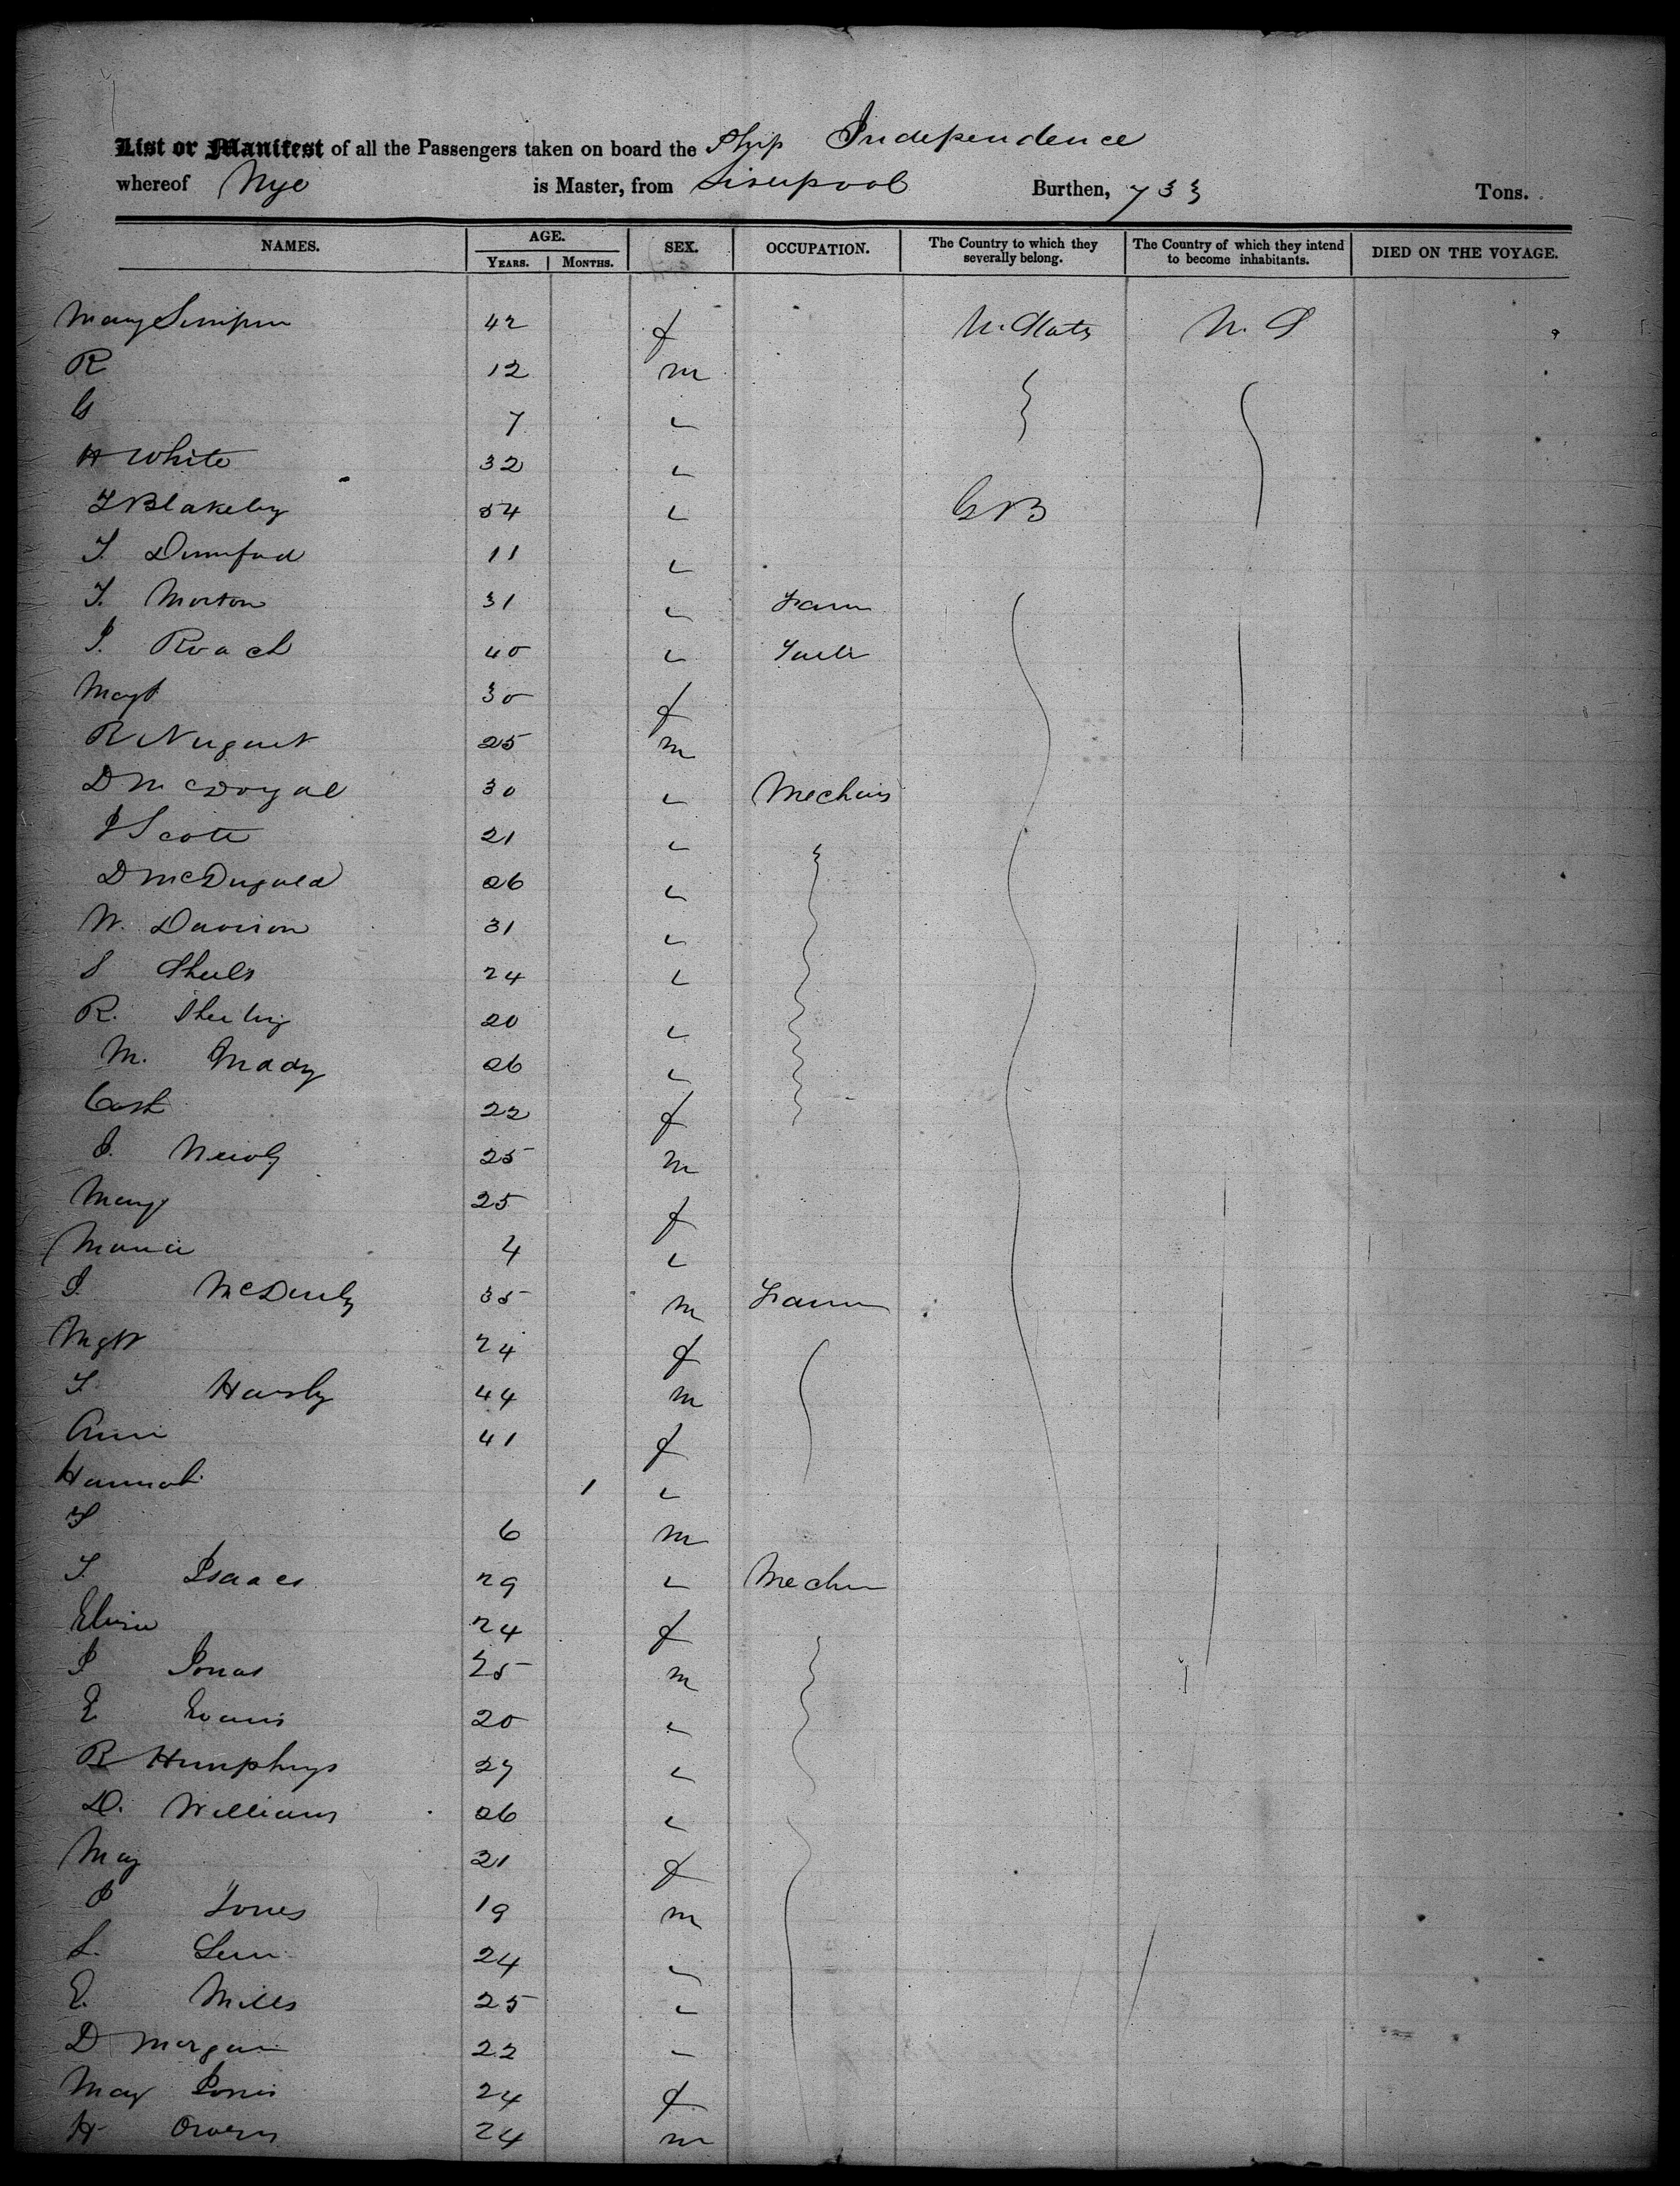 List or Manifest of all the Passengers taken on board the Ship Independence
whereof Nye is Master, from Liverpool Burthen, 733 Tons.
NAMES. AGE. SEX. OCCUPATION. The Country to which they severally belong. The Country of which they intend to become inhabitants. DIED ON THE VOYAGE.
YEARS. MONTHS.
Mary Simpson 42 f U. States U. S
R 12 m
G 7
H White 32
T Blakeley 34 GB
T. Durnford 11
T. Morton 31 Farm
J. Roach 40
Magt 30 f
R Nugent 25 m
D McDogal 30 Mechanic
J Scott 21
D McDugald 26
W. Davison 31
S Sheils 24
R. 20
M. Grady 26
Cath 22 f
J. 25 m
Mary 25 f
Maria 4
J. 35 m Farm
Mgt 24 f
T. 44 m
Ann 41 f
Hannah 1
T 6 m
T. Isaacs 29 Mechn
Eliza 24 f
J Jonas 25 m
E Evans 20
R Humphrys 27
D. Williams 26
May 21 f
J Jones 19 m
L. 24
E. Mills 25
D Morgan 22
May Jones 24 f
H Owens 24 m